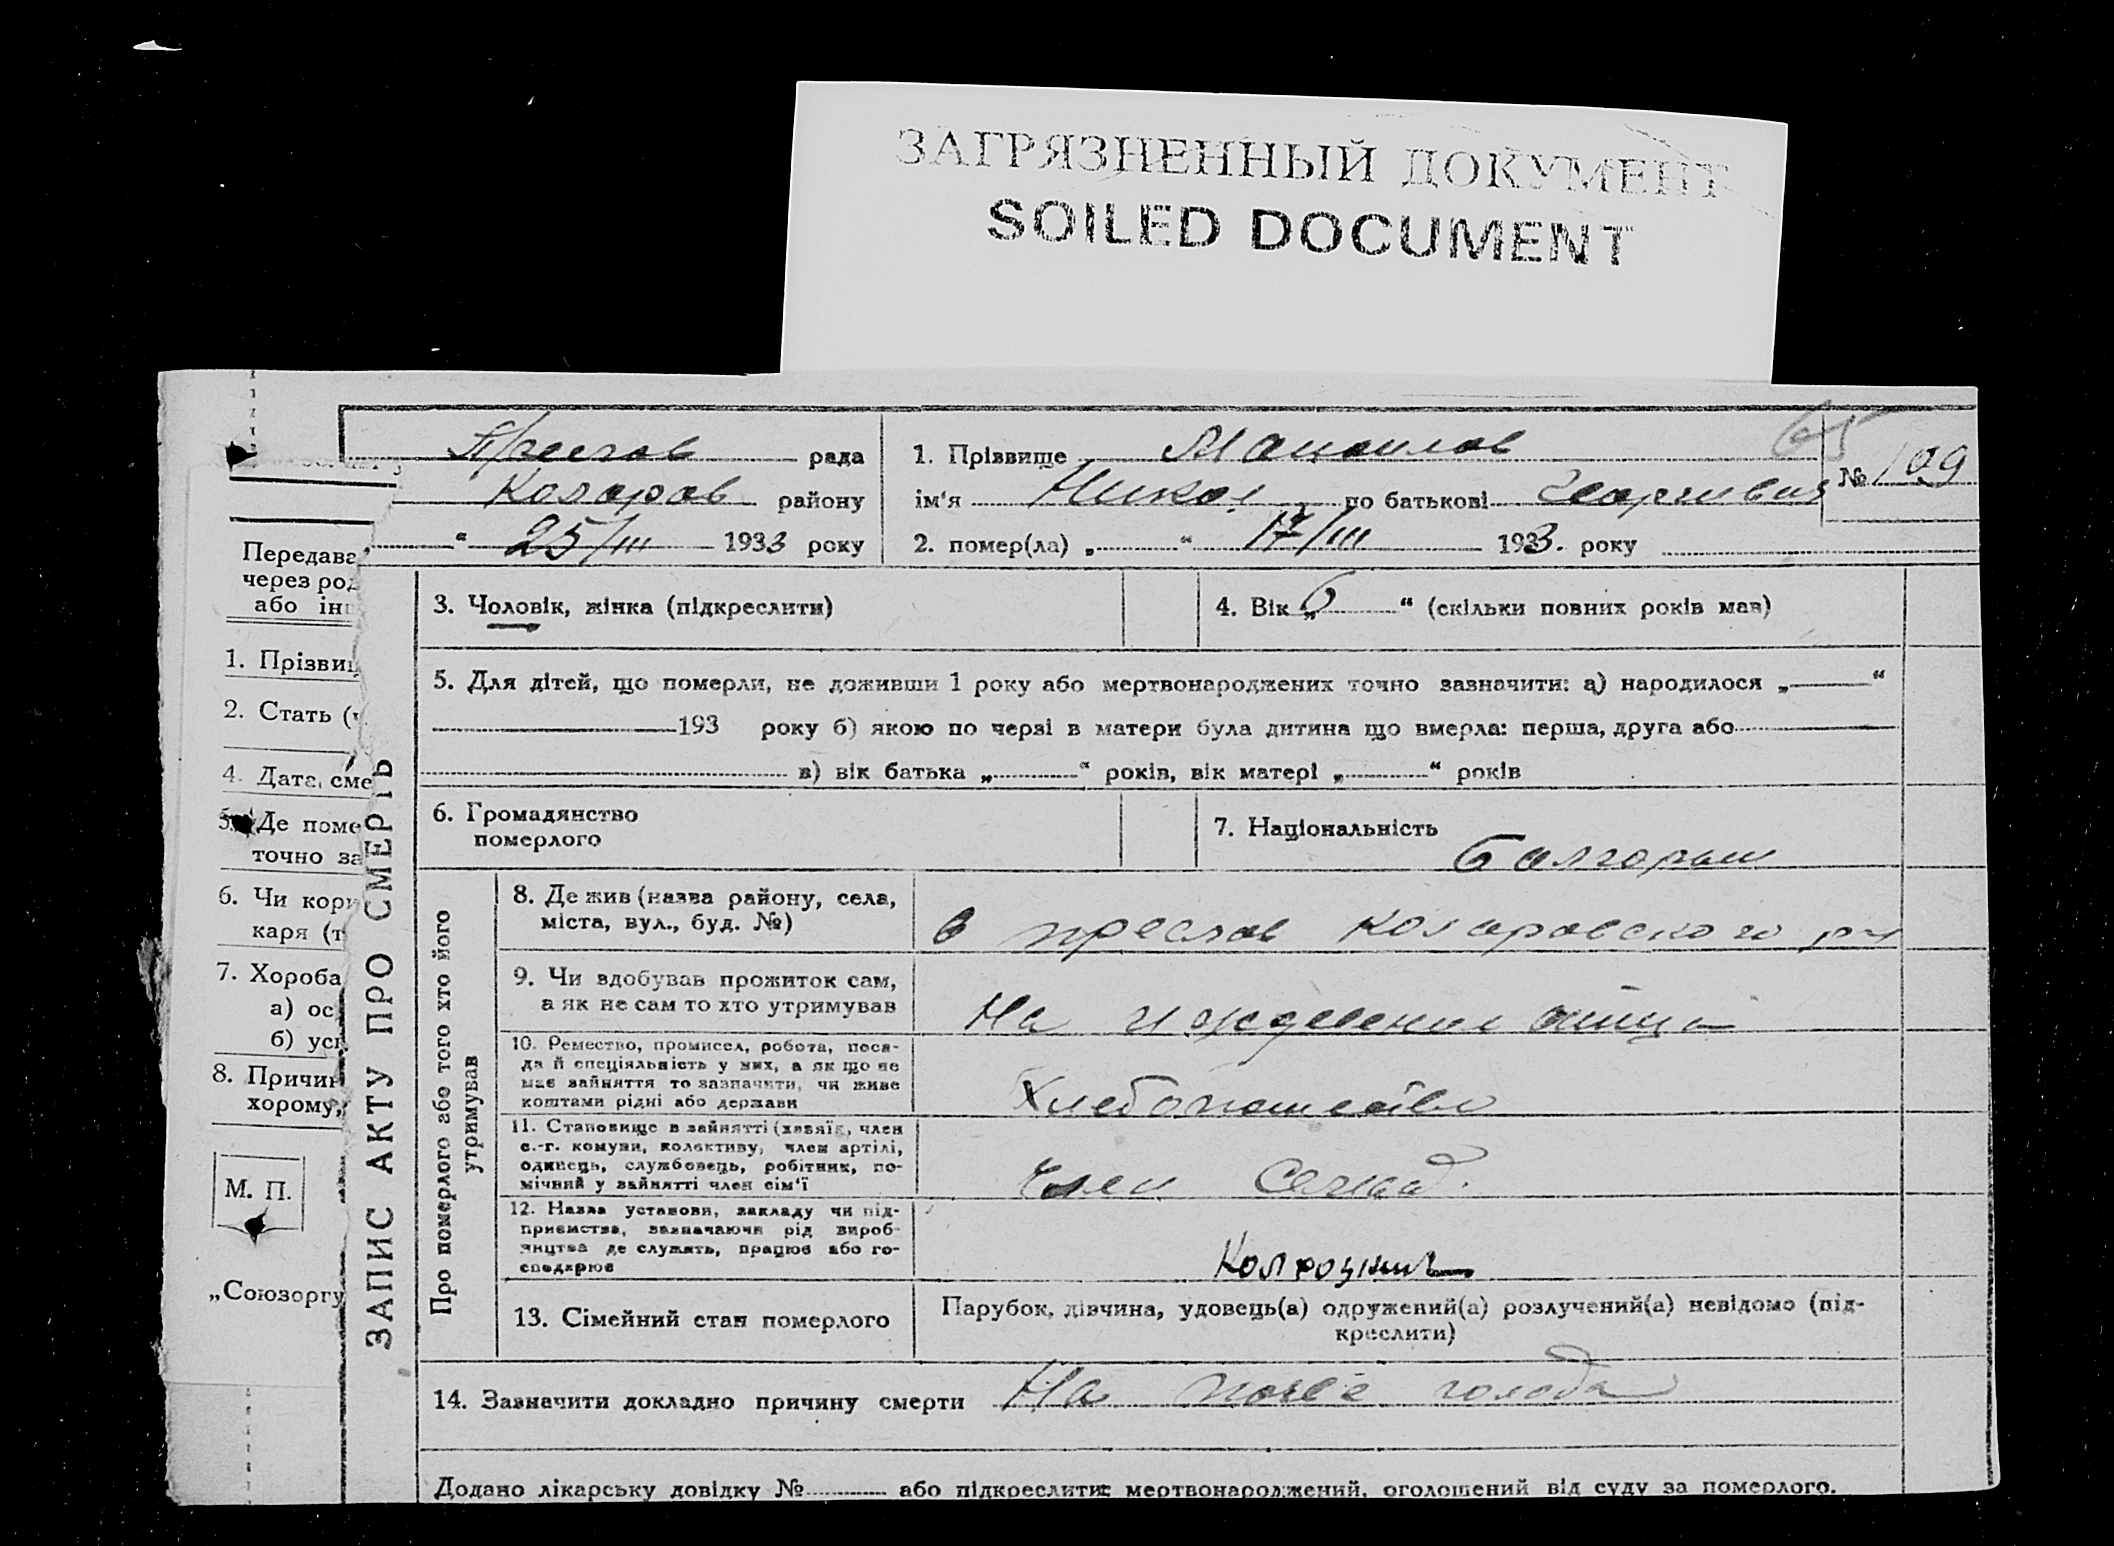 ЗАГРЯЗНЕННЫЙ ДОКУМЕНТ
SOILED DOCUMENT
Преслав рада
Коларов району
“ 25/III 1933 року
1. Прізвище Манолов
ім'я Никол по батькові Георгиевич
65
№ 109
2. помер(ла) „ “ 17/III 1933. року
3. Чоловік, жінка (підкреслити)
4. Вік „6“ (скільки повних років мав)
5. Для дітей, що померли, не доживши 1 року або мертвонароджених точно зазначити: а) народилося „ “
193 року б) якою по черзі в матери була дитина що вмерла: перша, друга або
в) вік батька „ “ років, вік матері „ “ років
6. Громадянство
померлого
7. Національність
Болгарин
ЗАПИС АКТУ ПРО СМЕРТЬ
Про померлого або того хто його
утримував
8. Де жив (назва району, села,
міста, вул., буд. №)
в преслав Коларовского р-н
9. Чи вдобував прожиток сам,
а як не сам то хто утримував
На иждевении отца
10. Ремество, промисел, робота, поса-
да й спеціяльність у них, а як що не
має зайняття то зазначити, чи живе
коштами рідні або держави
Хлебопашество
11. Становище в зайнятті (хазяїн, член
с.-г. комуни, колективу, член артілі,
одинець, службовець, робітник, по-
мічний у зайнятті член сім'ї
член
12. Назва установи, закладу чи під-
приємства, зазначаючи рід вироб-
ництва де служить, працює або го-
сподарює
13. Сімейний стан померлого
Парубок, дівчина, удовець(а) одружений(а) розлучений(а) невідомо (під-
креслити)
14. Зазначити докладно причину смерти На почве голода
Додано лікарську довідку № або підкреслити: мертвонароджений, оголошений від суду за померлого.
Передава
через род
або ін
1. Прізвищ
2. Стать (
4. Дата, сме
5. Де поме
точно за
6. Чи кори
каря (т
7. Хороба
а) ос
б) уск
8. Причин
хорому,
М. П.
„Союзоргу